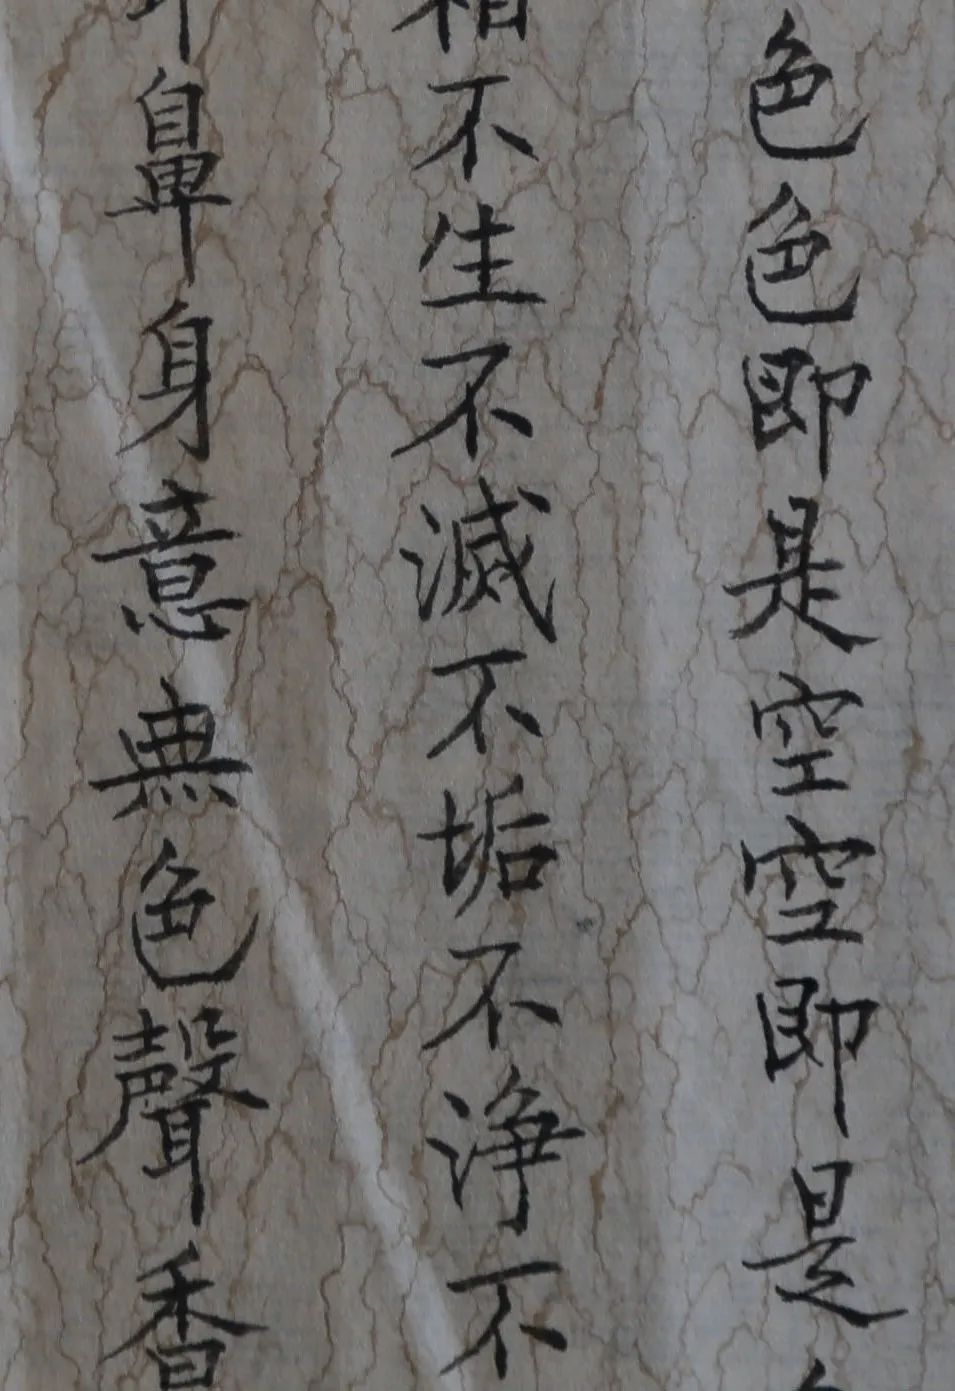 色色即是空空即是
相不生不滅不垢不淨不
耳鼻身意無色聲香